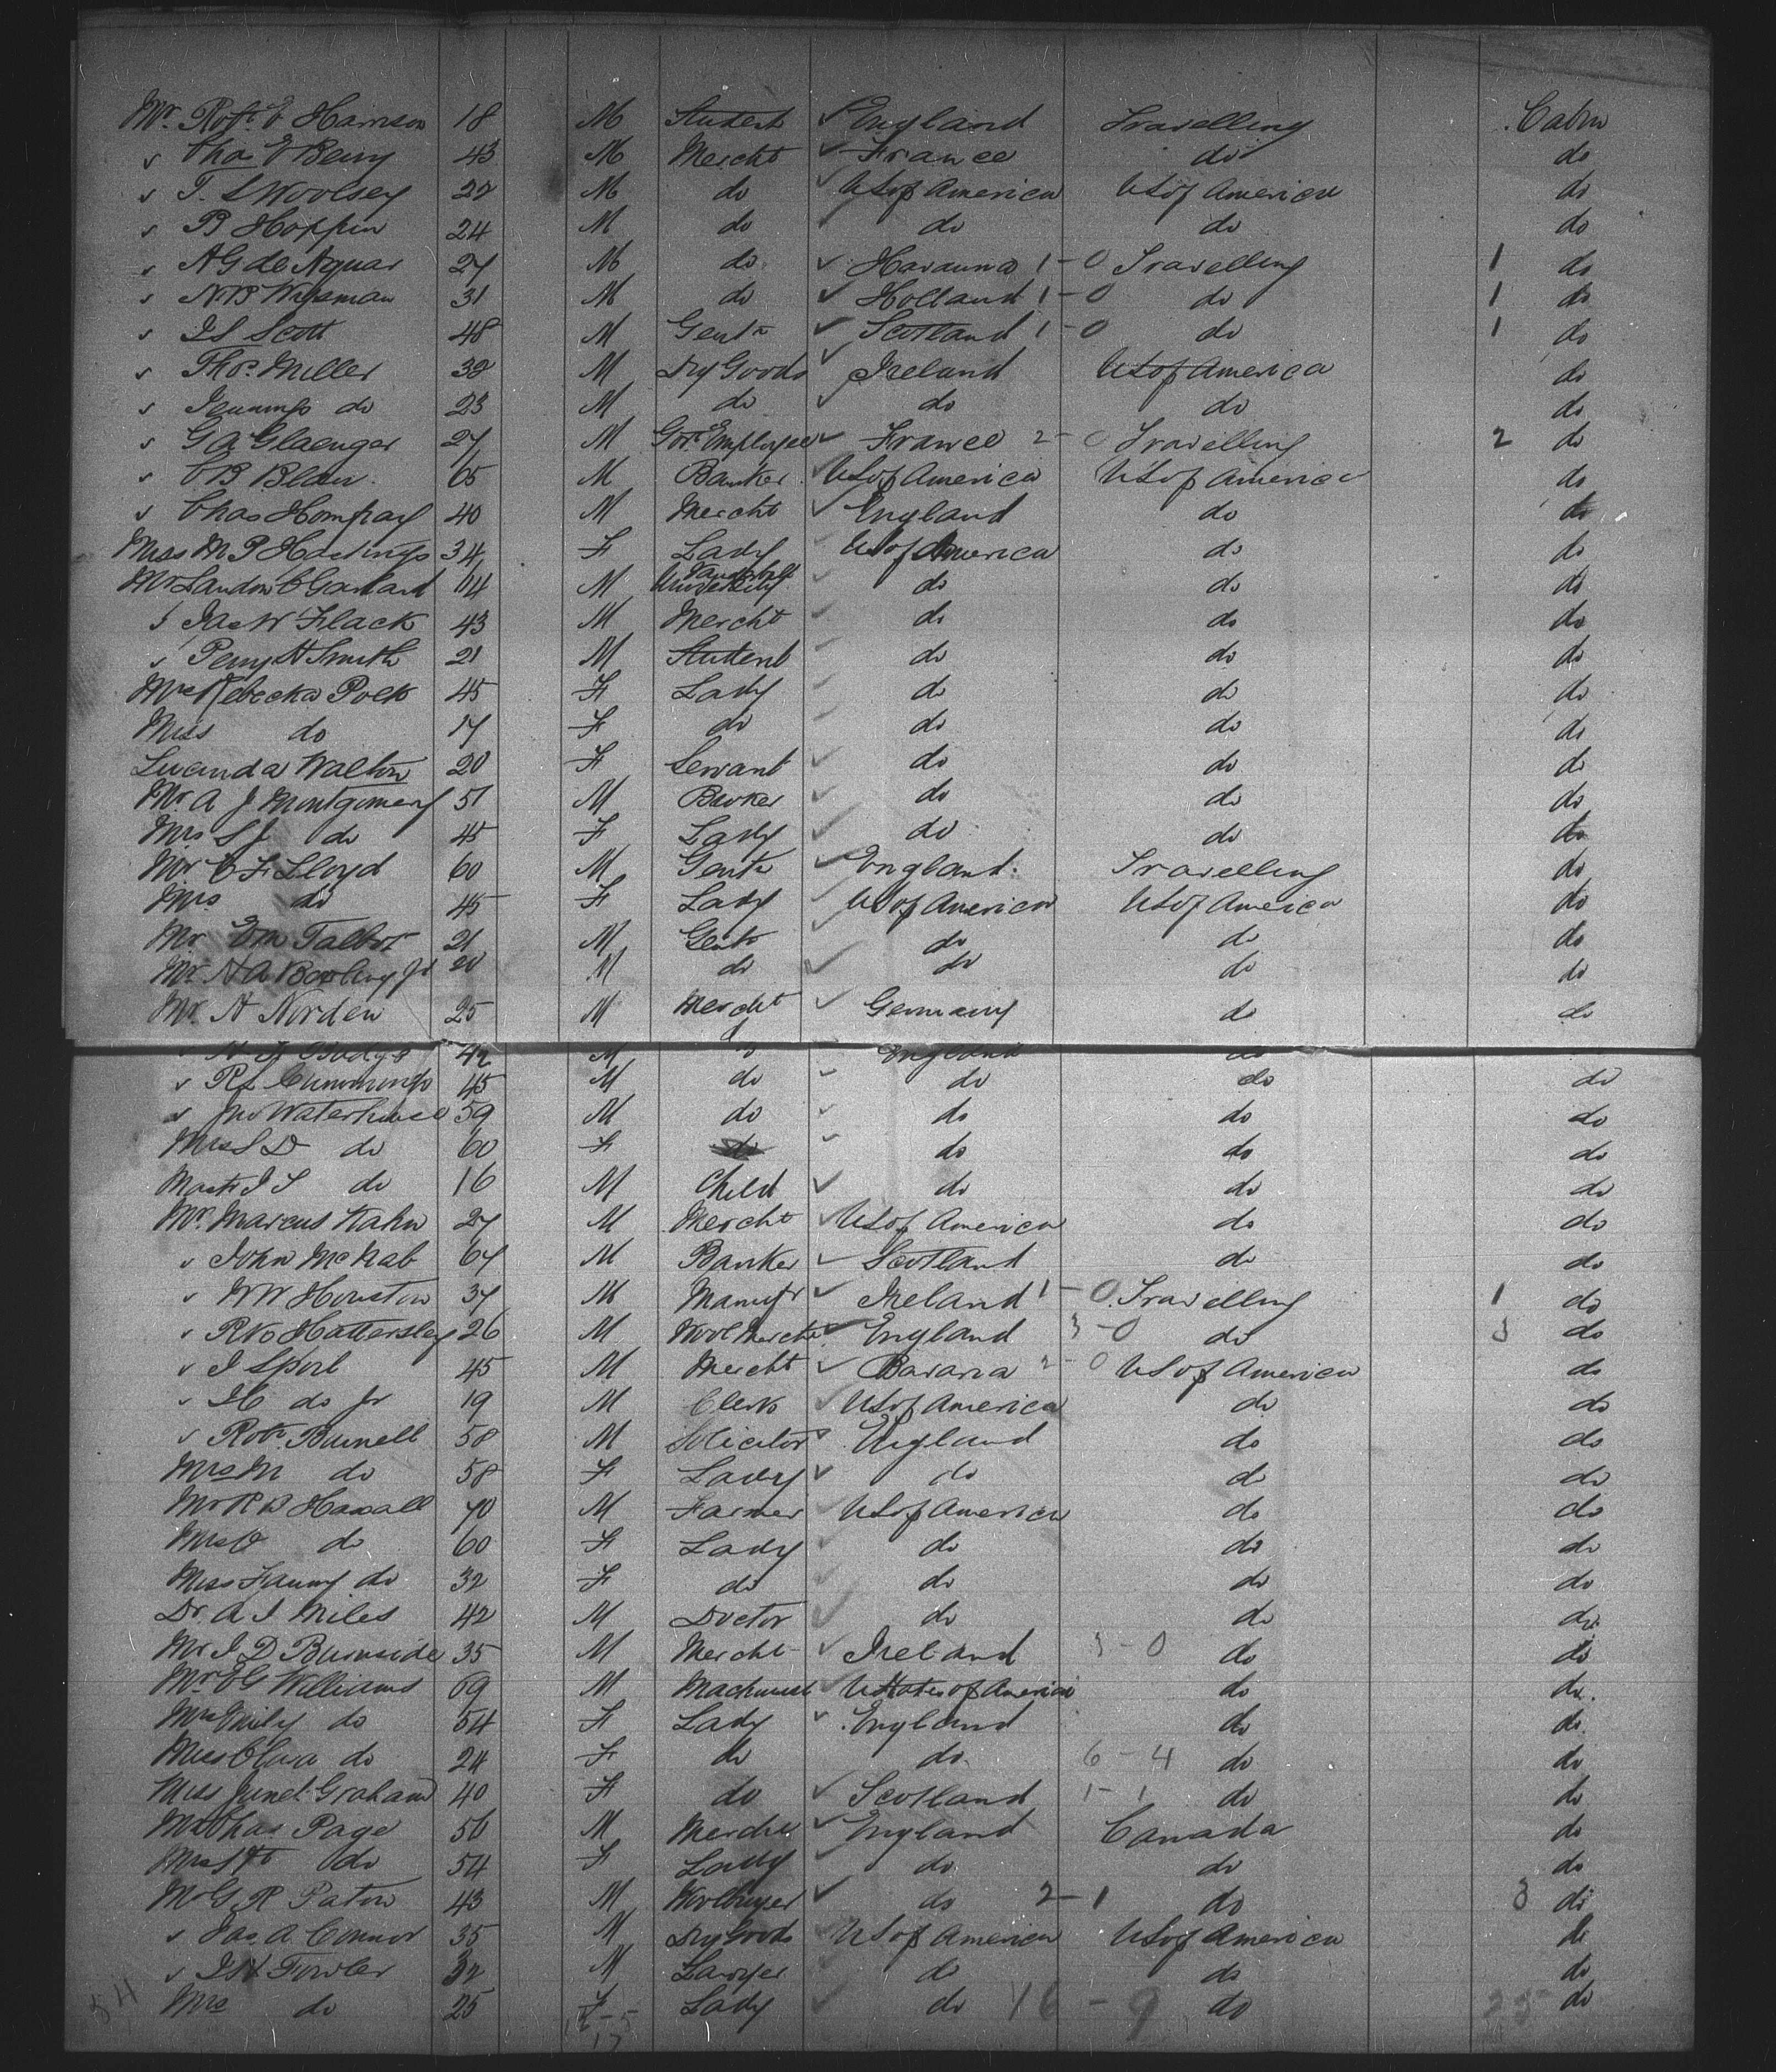 Mr. Robt. E Harrison 18 M Student England Travelling Cabin
" Chas E Berry 43 M Mercht France do do
" T. S Woolsey 22 M do US of America US of America do
" B Hoppin 24 M do do do do
" A G de Aguar 27 M do Havanna 1 - 0 Travelling 1 do
" N B Wigsman 31 M do Holland 1 - 0 do 1 do
" J S Scott 48 M Gentn Scotland 1 - 0 do 1 do
" Thos. Miller 32 M Dry Goods Ireland US of America do
" Jennings do 23 M do do do do
" G A Glaenger 27 M Govt. Employee France 2 - 0 Travelling 2 do
" C B Blair 65 M Banker US of America US of America do
" Chas Hompay 40 M Mercht England do do
Miss M P Hastings 34 F Lady US of America do do
Mr Landon C Garland 64 M Vanderbilt University do do do
" Jas W Flack 43 M Mercht do do do
" Perry H Smith 21 M Student do do do
Mrs Rebecka Polk 45 F Lady do do do
Miss do 17 F do do do do
Lucinda Walton 20 F Servant do do do
Mr A J Montgomery 51 M Broker do do do
Mrs S J do 45 F Lady do do do
Mr C F Lloyd 60 M Gentn England Travelling do
Mrs do 45 F Lady US of America US of America do
Mr Tom Talbot 21 M Gentn do do do
Mr. H A Bowling Jr 20 M do do do do
Mr. H Norden 25 M Mercht Germany do do
42 M England do
" R L Cummings 45 M do do do do
" Jno Waterhouse 59 M do do do do
Mrs S D do 60 F do do do do
Mastr J S do 16 M Child do do do
Mr. Marcus Kahn 27 M Mercht US of America do do
" John McNab 67 M Banker Scotland do do
" W W Houston 37 M Manufr Ireland 1 - 0 Travelling 1 do
" R Vo Hattersley 26 M Wool Mercht England 3 - 0 do 3 do
" J Sporl 45 M Mercht Bavaria 2 - 0 US of America do
" J C do Jr 19 M Clerk US of America do do
" Robt. Burnell 58 M Solicitor England do do
Mrs M do 58 F Lady do do do
Mr R B Haxall 70 M Farmer US of America do do
Mrs O do 60 F Lady do do do
Miss Fanny do 32 F do do do do
Dr. A J Miles 42 M Doctor do do do
Mr J D Burnside 35 M Mercht Ireland 3 - 0 do do
Mr. C G Williams 69 M Machinist U States of America do do
Mrs Mily do 54 F Lady England do do
Miss Clara do 24 F do do 6 - 4 do do
Miss Janet Graham 40 F do Scotland 1 - 1 do do
Mr Chas Page 56 M Mercht England Canada do
Mrs do 54 F Lady do do do
Mr G R Paton 43 M Woolbuyer do 2 - 1 do 3 do
" Jas. A Connor 35 M Dry Goods US of America US of America do
" J H Fowler 32 M Lawyer do do do
54 Mrs do 25 F Lady do 16 - 9 do 25 do
12 - 5
17